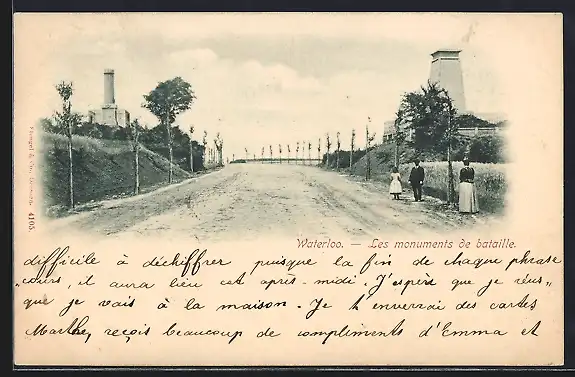 Waterloo. — Les monuments de bataille.
difficile à déchiffrer puisque la fin de chaque phrase
"cours, il aura lieu cet après-midi. J'espère que je réus„
que je vais à la maison. Je t'enverrai des cartes
Marthe, reçois beaucoup de compliments d'Emma et
4105.